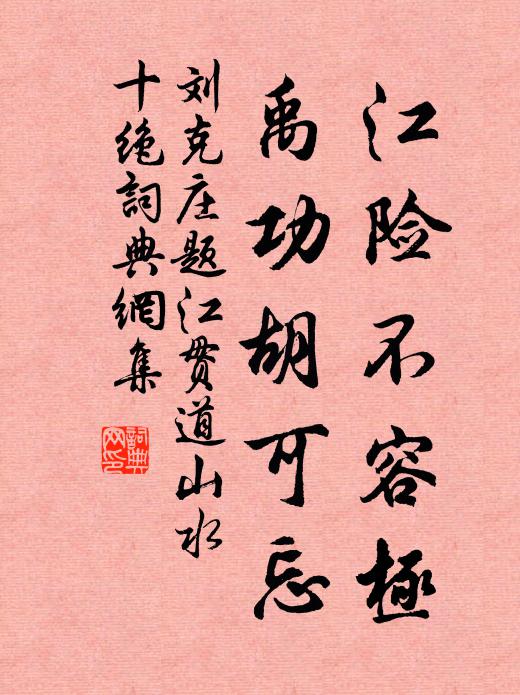 江险不容極
禹功胡可忘
刘克庄题江贯道山水
十绝詞典網集
詞典网印